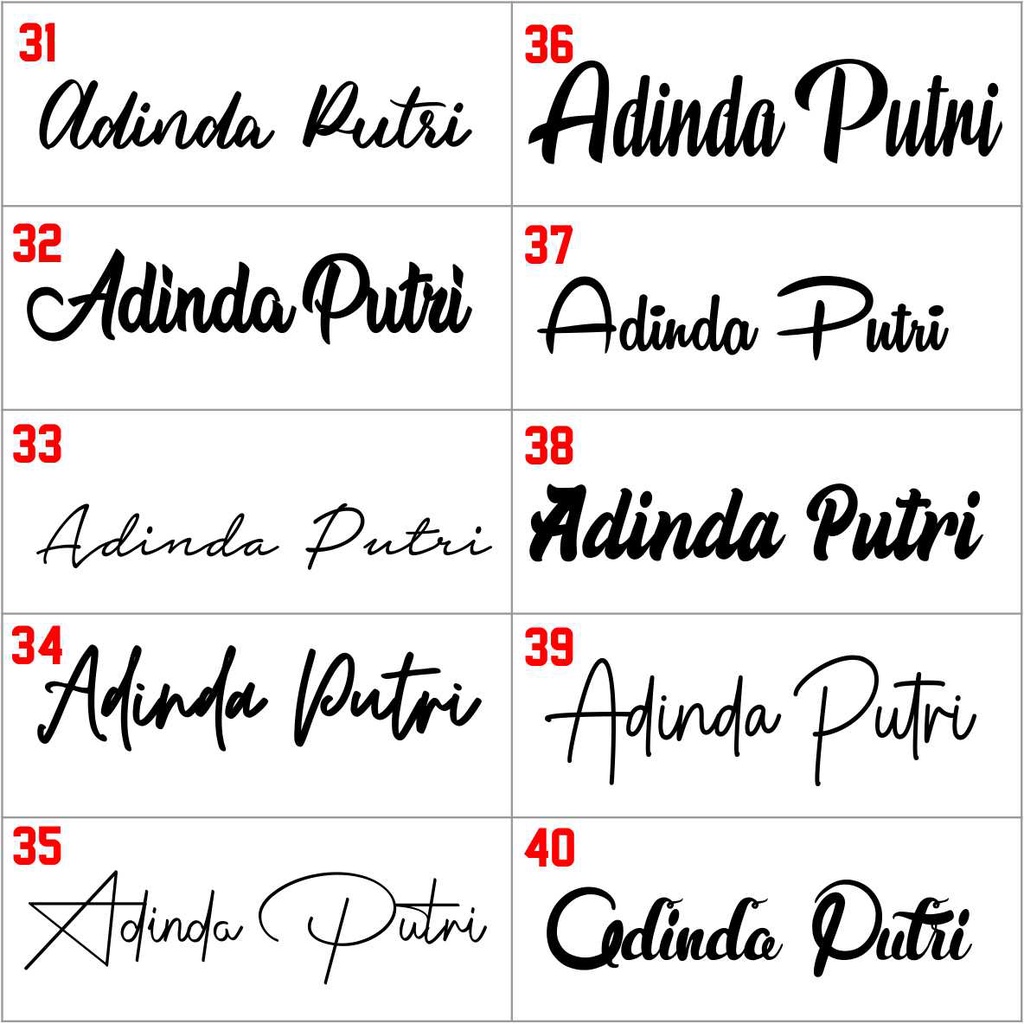 31
Adinda Putri
36
Adinda Putri
32
Adinda Putri
37
Adinda Putri
33
Adinda Putri
38
Adinda Putri
34
Adinda Putri
39
Adinda Putri
35
Adinda Putri
40
Adinda Putri